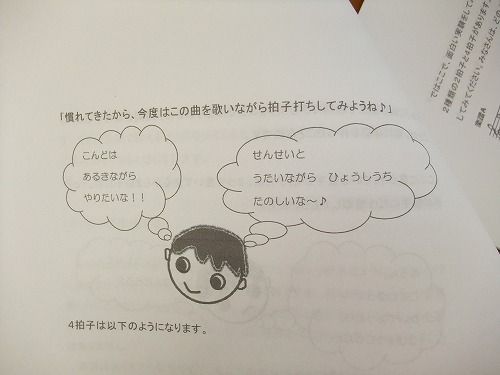 「慣れてきたから、今度はこの曲を歌いながら拍子打ちしてみようね♪」
こんどは
あるきながら
やりたいな！！
せんせいと
うたいながら　ひょうしうち
たのしいな～♪
４拍子は以下のようになります。
ではここで、面白い実験をして
２種類の２拍子と４拍子があります。
してみてください。みなさんは、どの
楽譜A